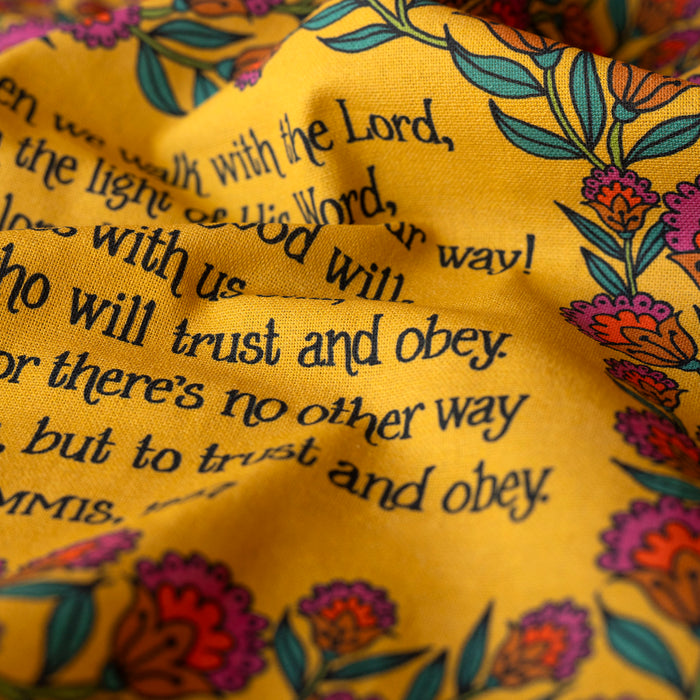 en we walk with the Lord,
the light of His Word,
way!
with us
God will
ho will trust and obey.
or there's no other way
, but to trust and obey.
MMIS,